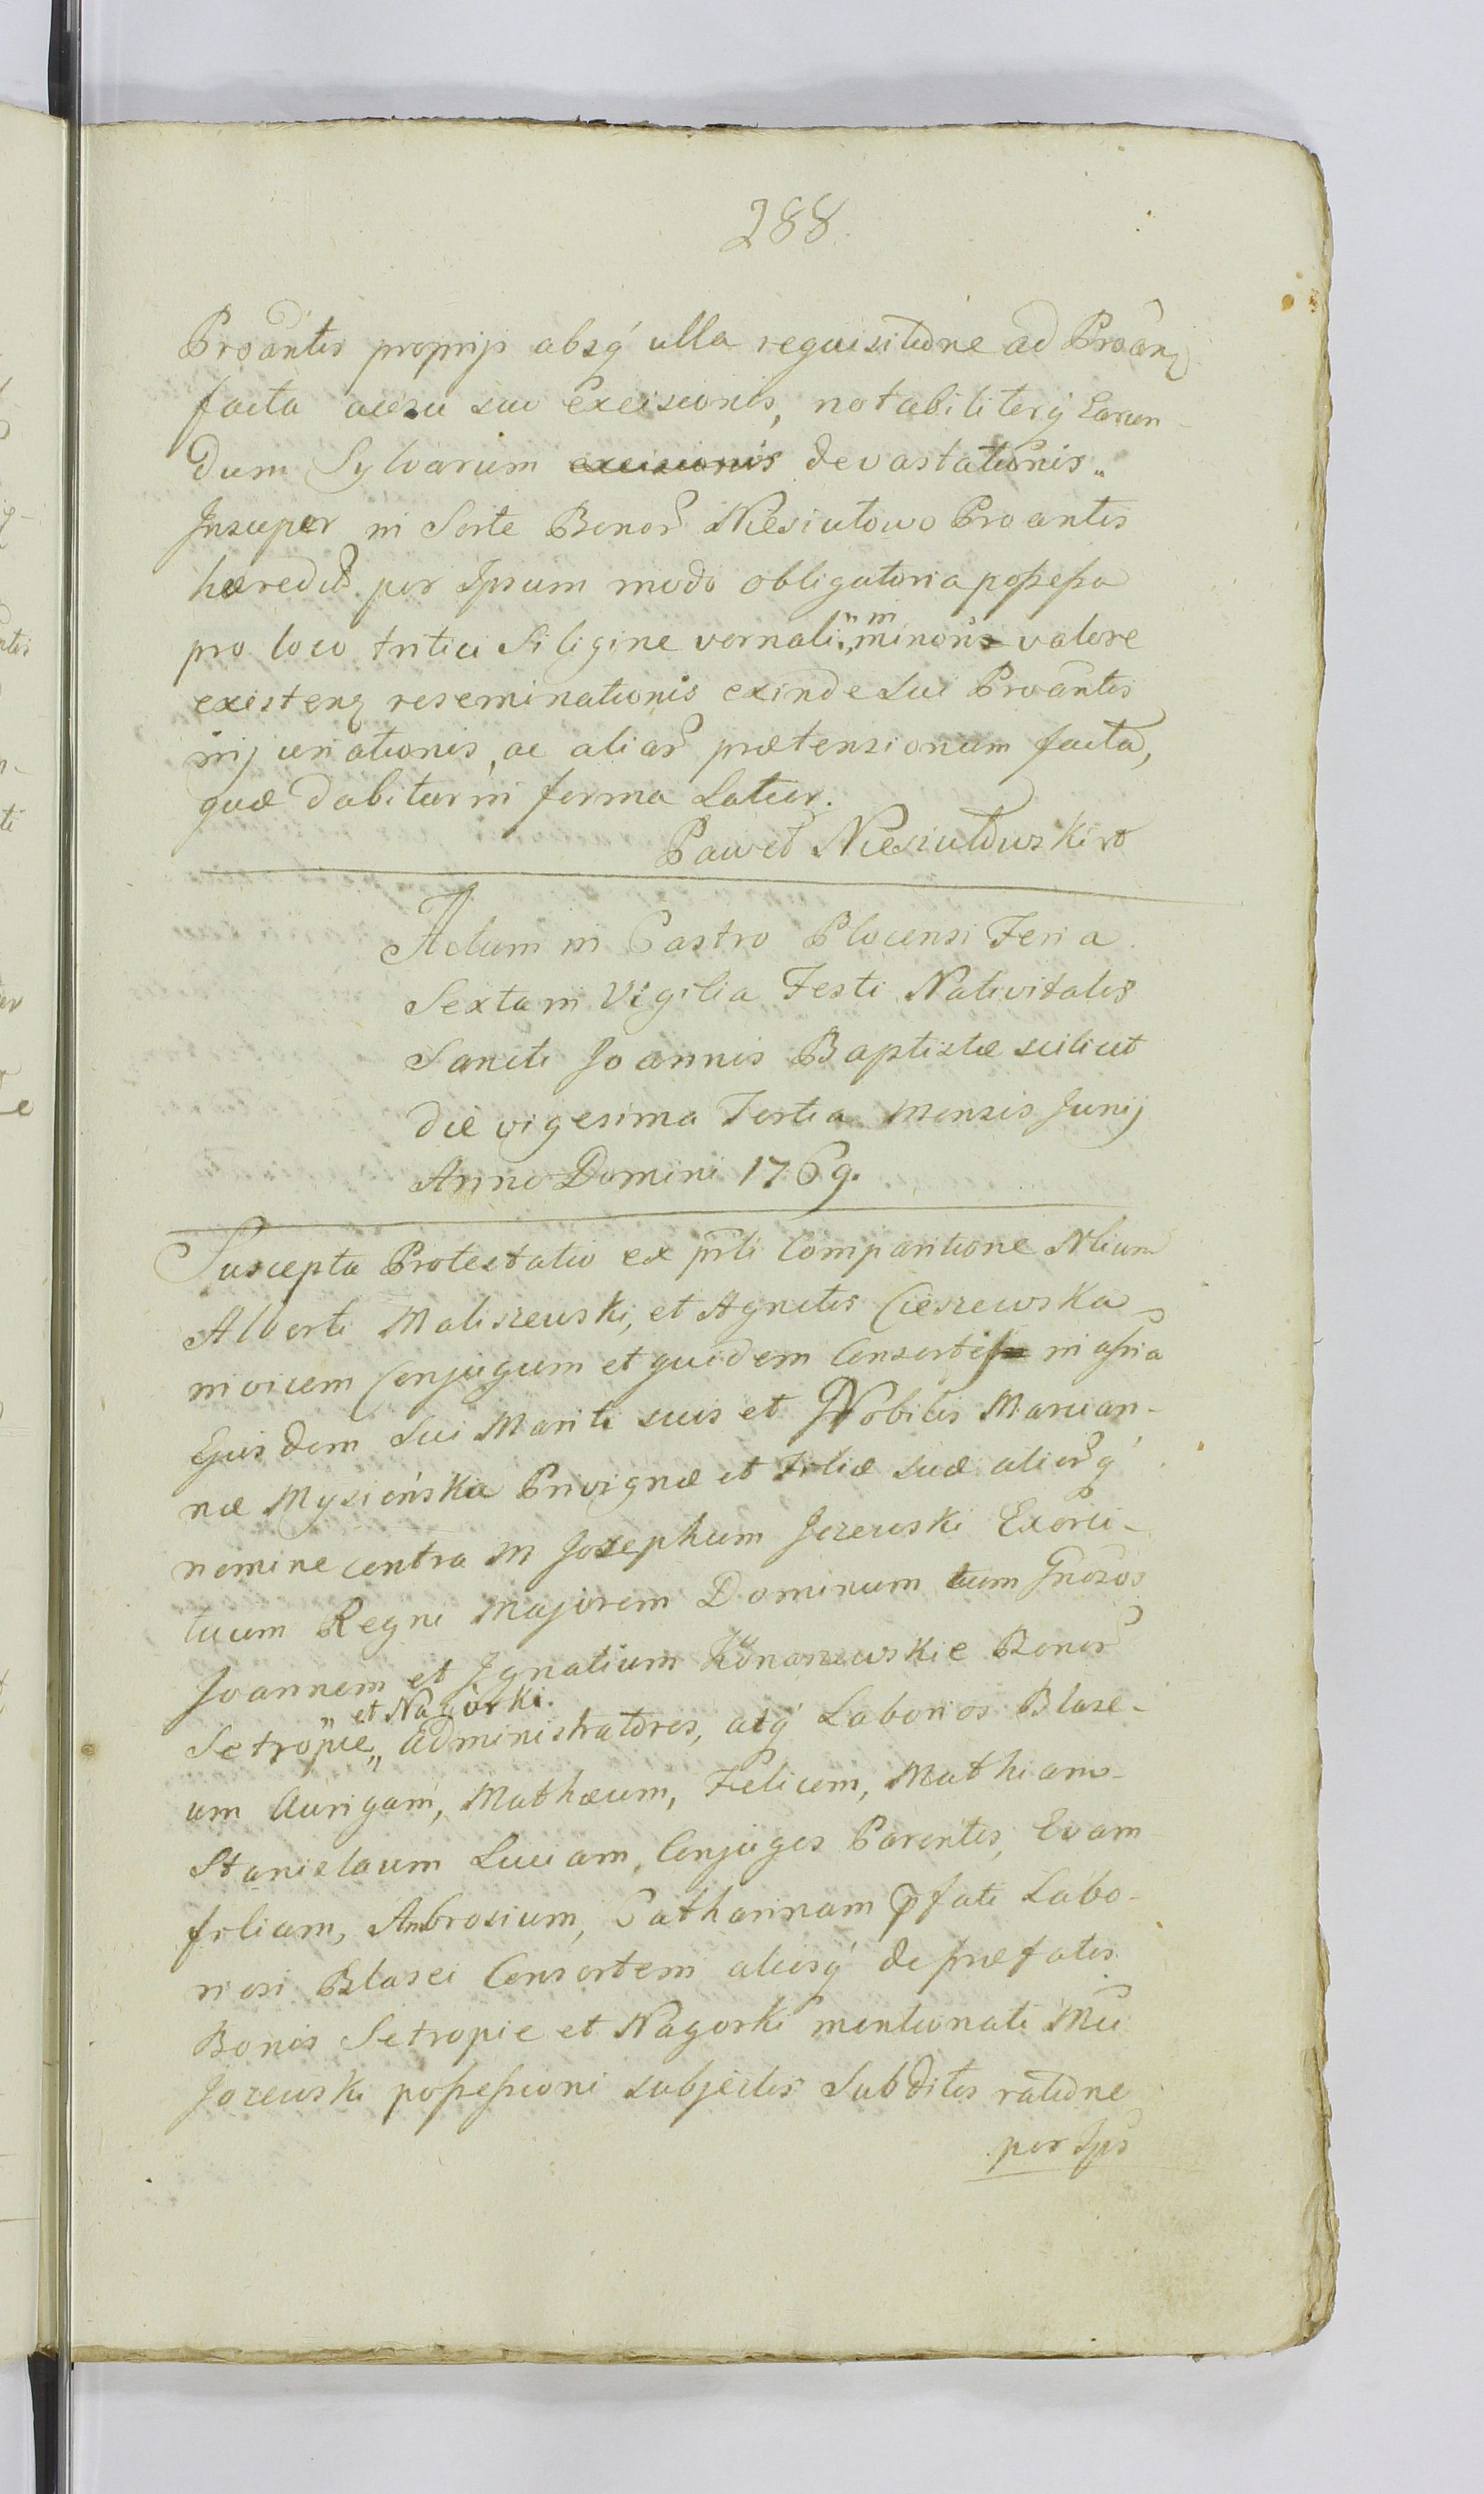 288.
Proantis proprijs absq́ ulla requisitione ad Proanq
facta ausu suo Excisionis, notabiliterq́ Earun
dum Sylvarum excisionis devastationis.
Insuper in Sorte Bonor Niesiutowo Proantis
hæredit. per Ipsum modo obligatoria poßeßa
pro loco tritici Siligine vernali "in" minoris valore
existenq reseminationis exinde sui Proantis
injuriationis, ac aliar prætensionum facta,
quæ dabitur in forma Latior.
Paweł Niesiułowski
Actum in Castro Plocensi Feria
Sexta in Vigilia Festi Nativitatis
Sancti Joannis Baptistæ scilicet
die vigesima Tertia Mensis Junij
Anno Domini 1769.
Suscepta Protestatio ex prti Comparitione Nlium
Alberti Maliszewski, et Agnetis Cieszewska
invicem Conjugum et quidem Consortis in aßia
Ejusdem Sui Mariti suis et Nobilis Marian-
næ Mysieńska Privignæ et Filiæ suæ aliorq́
nomine contra M Josephum Jezewski Exerci-
tuum Regni Majorem Dominum tum Gnosos
Joannem et Ignatium Konarzewskie Bonor
et Nagórki.
Setropie „ Administratores, atq́ Laborios Blase-
um Aurigam, Mathæum, Felicem, Mathiam
Stanislaum Luciam, Conjuges Parentes, Evam
filiam, Ambrosium, Catharinam pfati Labo-
riosi Blasei Consortem aliosq́ de præfatis
Bonis Setropie et Nagorki mentionati Mci
Jezewski poßeßioni subjectis Subditos ratione
per Ips